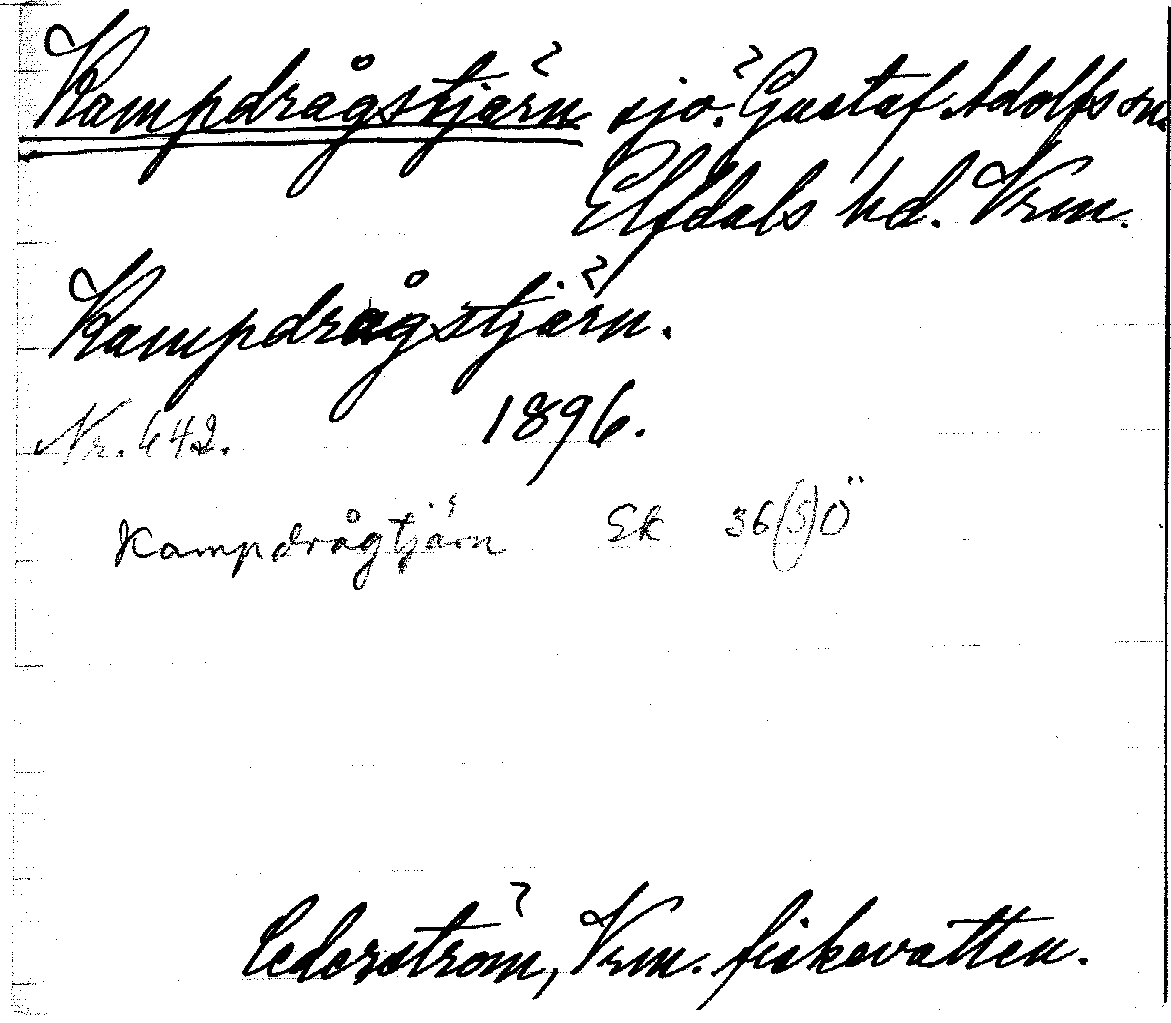 Kampdrågstjärn sjö. Gustaf Adolfs sn.
Elfdals hd. Vrm.
Kampdrågstjärn.
Nr. 642. 1896.
Kampdrågtjärn Ek 36(S)Ö
Cederström, Vrm. fiskevatten.